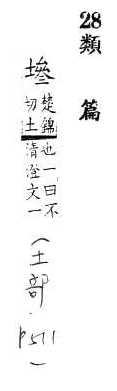 28 類 篇
墋
楚錦
切土
也一曰不
清澄文一
(土部 p511)